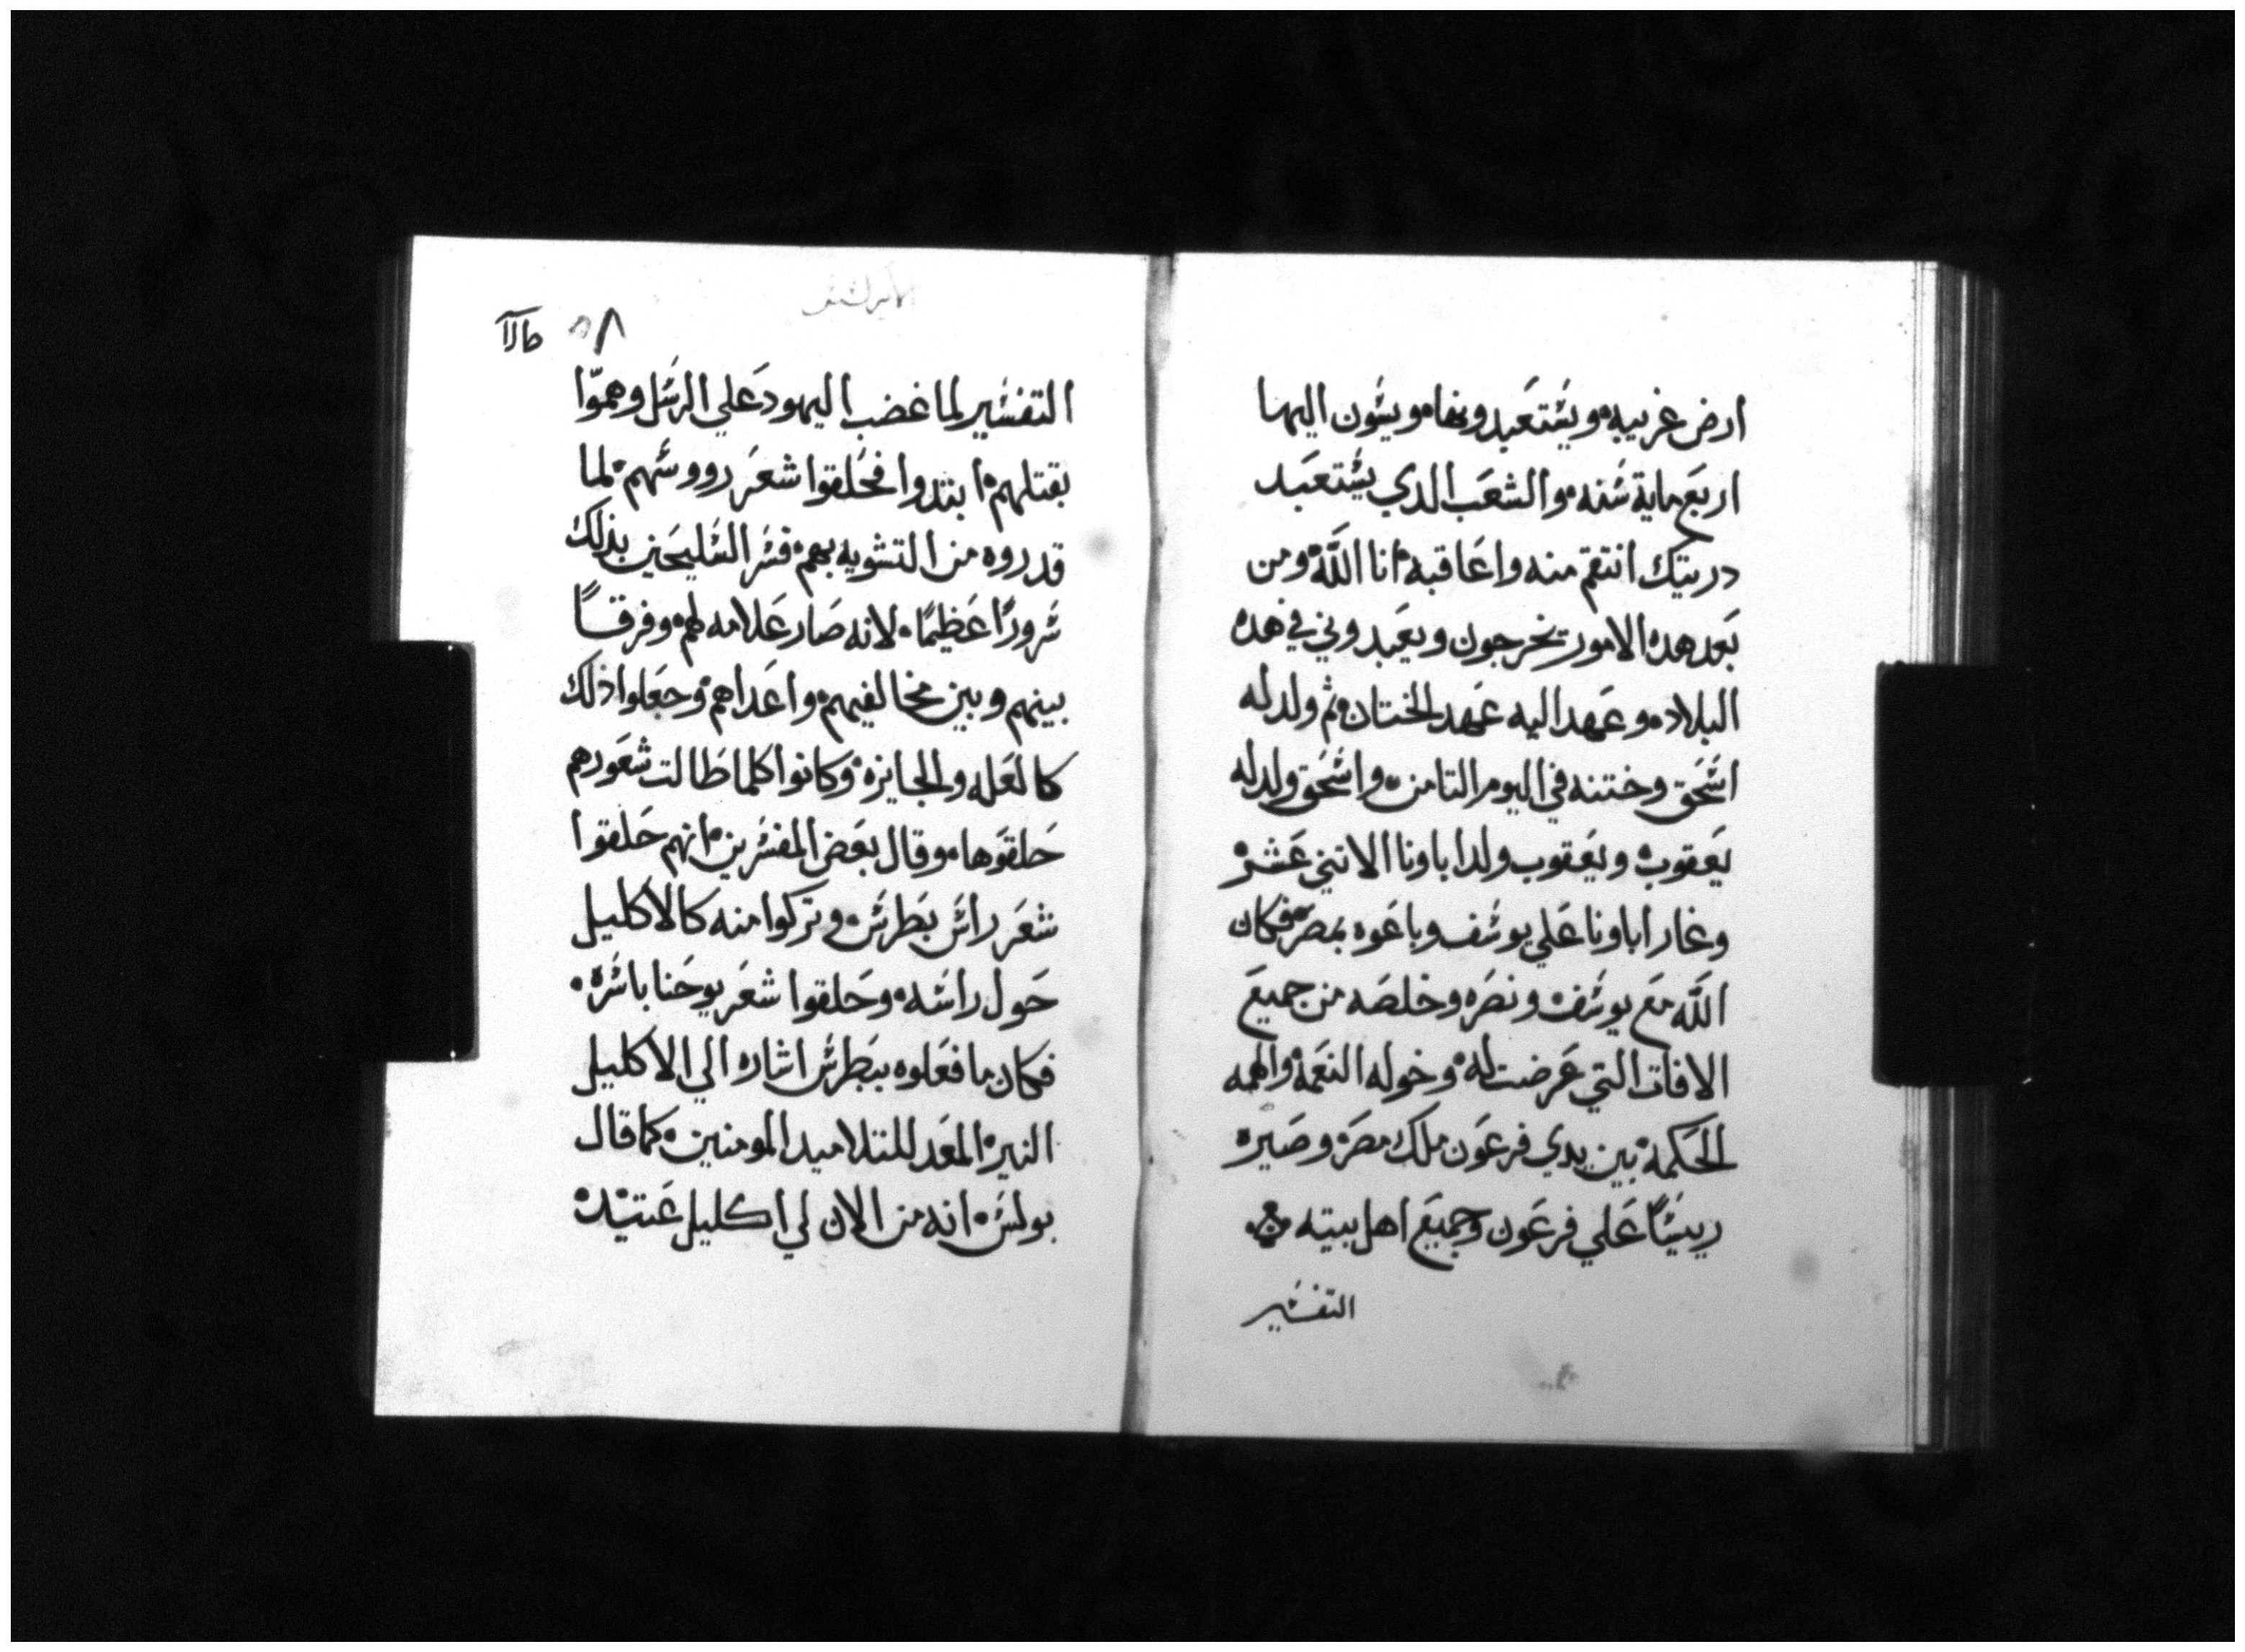 ارض غريبه ويستعبدونها ويسون اليها
اربع ماية سنه والشعب الدي يستعبد
دريتك انتقم منه واعاقبه انا الله ومن
بعد هده الامور يخرجون ويعبدوني في هده
البلاد وعهد اليه عهد الختان ثم ولد له
اسحق وختنه في اليوم التامن واسحق ولد له
يعقوب ويعقوب ولد اباونا الاتني عشر
وغار اباونا علي يوسف وباعوه بمصر فكان
الله مع يوسف ونصره وخلصه من جميع
الافات التي عرضت له وخوله النعمة والهمه
الحكمة بين يدي فرعون ملك مصر وصيره
رييسًا علي فرعون وجميع اهل بيته
التفسير
٥٨
التفسير لما غضب اليهود علي الرسل وهموّا
بقتلهم ابتدوا فحلقوا شعر رووسهم لما
قدروه من التشويه بهم فسر السليحين بذلك
سرورًا عظيمًا لانه صار علامه لهم وفرقًا
بينهم وبين مخالفيهم واعداهم وجعلوا ذلك
كالعله والجايزة وكانوا كلما طالت شعورهم
حلقوها وقال بعض المفسرين انهم حلقوا
شعر راس بطرس وتركوا منه كالاكليل
حول راسه وحلقوا شعر يوحنا باسره
فكان ما فعلوه ببطرس اشاره الي الاكليل
النير المعد للتلاميد المومنين كما قال
بولس انه من الان لي اكليل عتيد